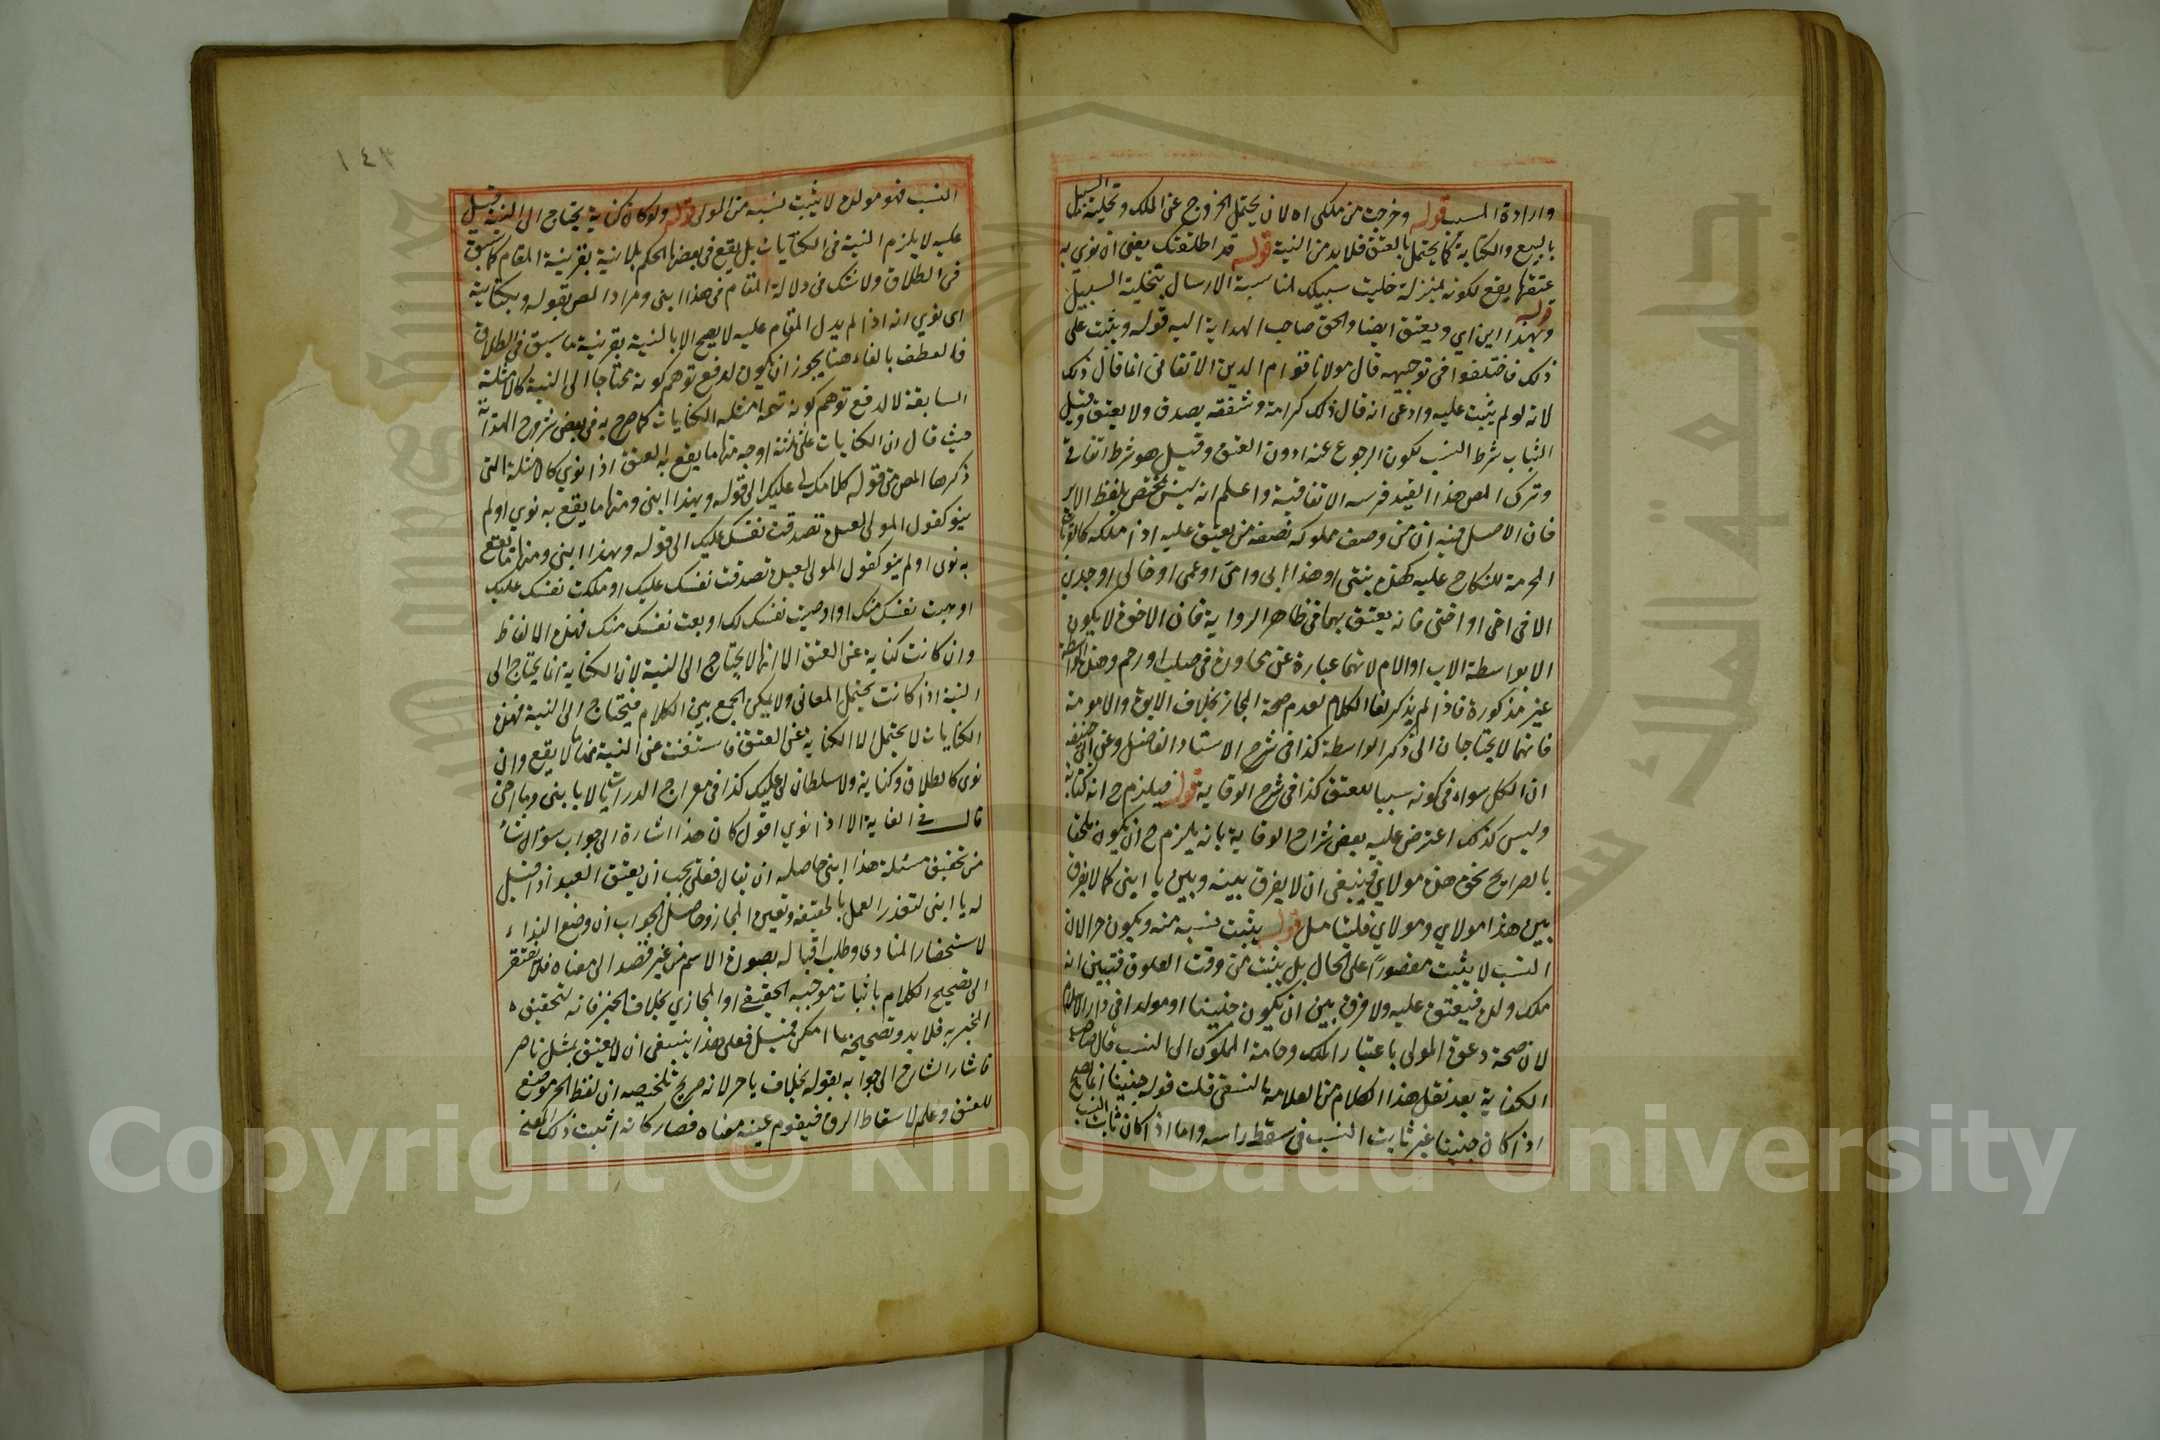 وارادة المسبب قوله وخرجت من ملكى اه لانه يحتمل الخروج عن الملك وتخلية السبيل
بالبيع والكتابة كما يحتمل بالعتق فلا بد من النية قوله قد اطلقتك يعنى ان نوى به
عتقها يقع لكونه بمنزلة خليت سبيلك لمناسبة الارسال بتخلية السبيل
قوله وبهذا ابنى اي ويعتق ايضا والحق صاحب الهداية اليه قوله ويثبت على
ذلك فاختلفوا فى توجيهه قال مولانا قوام الدين الاتقانى انما قال ذلك
لانه لو لم يثبت عليه وادعى انه قال ذلك كرامة وشفقة يصدق ولا يعتق وقيل
الثبات شرط النسب لكون الرجوع عنه دون العتق وقيل هو شرط اتفاقى
وترك المص هذا القيد فرسه الاتفاقية واعلم انه ليس مختص بلفظ الابن
فان الاصل فيه ان من وصف مملوكه بصفة من يعتق عليه اذا ملكه كالقرابة
المحرمة للنكاح عليه كهذه بنتى او هذا ابى وامى او عمى او خالى او جدى
الا فى اخى او اختى فانه يعتق بهما فى ظاهر الرواية فان الاخوة لا يكون
الا بواسطة الاب او الام لانها عبارة عن مجاورة فى صلب او رحم وهذه الواسطة
غير مذكورة فاذا لم يذكر لغا الكلام لعدم صحة المجاز بخلاف الابوة والامومة
فانهما لا يحتاجان الى ذكر الواسطة كذا فى شرح الاستاد الفاضل وعن ابى حنيفة
ان الكل سواء فى كونه سببا للعتق كذا فى شرح الوقاية قوله فيلزم ح انه كناية
وليس كذلك اعترض عليه بعض شراح الوقاية بانه يلزم ح ان يكون ملحقا
بالصرايح نحو هذه مولاي فينبغى ان لا يفرق بينه وبين يا ابنى كما لا يفرق
بين هذا مولاي ومولاي فليتامل قوله يثبت نسبه منه ويكون حرا لان
النسب لا يثبت مقصورا على الحال بل يثبت من وقت العلوق فتبين انه
ملك ولده فيعتق عليه ولا فرق بين ان يكون جنينا او مولدا فى دار الاسلام
لان صحة دعوة المولى باعتبار الملك وحاجة المملوك الى النسب قال صاحب
الكفاية بعد نقل هذا الكلام من العلامة النسفى قلت قوله جنينا انما يصح
اذا كان جنينا غير ثابت النسب فى مسقط راسه واما اذا كان ثابت النسب
١٤٣
النسب فهو مولده لا يثبت نسبه من المولى قوله ولو كان كناية يحتاج الى النية قيل
عليه لا يلزم النية فى الكنايات بل يقع فى بعضها الحكم بلا نية بقرينة المقام كما سبق
فى الطلاق ولا شك فى دلالة المقام فى هذا ابنى ومراد المص بقوله وبكناية
اى نوي انه اذا لم يدل المقام عليه لا يصح الا بالنية بقرينة ما سبق فى الطلاق
فالعطف بالفاء هنا يجوز ان يكون لدفع توهم كونه محتاجا الى النية كالامثلة
السابقة لا لدفع توهم كونه تتمة امثلة الكنايات كما صرح به فى بعض شروح الهداية
حيث قال ان الكنايات على ثلثة اوجه منها ما يقع به العتق اذا نوي كالامثلة التى
ذكرها المص من قوله كلامك لى عليك الى قوله وبهذا ابنى ومنها ما يقع به نوي او لم
ينو كقول المولى لعبده تصدقت نفسك عليك الى قوله وبهذا ابنى ومنها ما يقع
به نوى او لم ينو كقول المولى لعبده تصدقت نفسك عليك او ملكت نفسك عليك
او وهبت نفسك منك او اوصيت نفسك لك او بعت نفسك منك فهذه الالفاظ
وان كانت كناية عن العتق الا انها لا يحتاج الى النية لان الكناية انما يحتاج الى
النية اذا كانت يحتمل المعانى ولا يمكن الجمع بين الكلام فيحتاج الى النية فهذه
الكنايات لا يحتمل الا الكناية عن العتق فاستغنت عن النية ثمة ما لا يقع وان
نوى كالطلاق وكناية ولا سلطان لى عليك كذا فى معراج الدراية لا يا بنى ويا اخى
قال فى الغاية الا اذا نوي اقول كان هذا اشارة الى جواب سؤال نشأ
من تحقيق مسئلة هذا ابنى حاصله ان يقال فعلى يجب ان يعتق العبد اذا قيل
له يا ابنى لتعذر العمل بالحقيقة وتعين المجاز وحاصل الجواب ان وضع النداء
لاستحضار المنادى وطلب اقباله بصورة الاسم من غير قصد الى معناه فلا يفتقر
الى تصحيح الكلام باثبات موجبه الحقيقى او المجازي بخلاف الخبر فانه لتحقيق
المخبر به فلا بد وتصحيحه بما امكن فقيل فعلى هذا ينبغى ان لا يعتق بمثل ناصر
فاشار الشارح الى جوابه بقوله بخلاف يا حر لانه صريح تلخيصه ان لفظ الحر موضوع
للعتق وعلم لاسقاط الرق فيقوم عينه معناه فصار كانه اثبت ذلك المعنى
Copyright © King Saud University